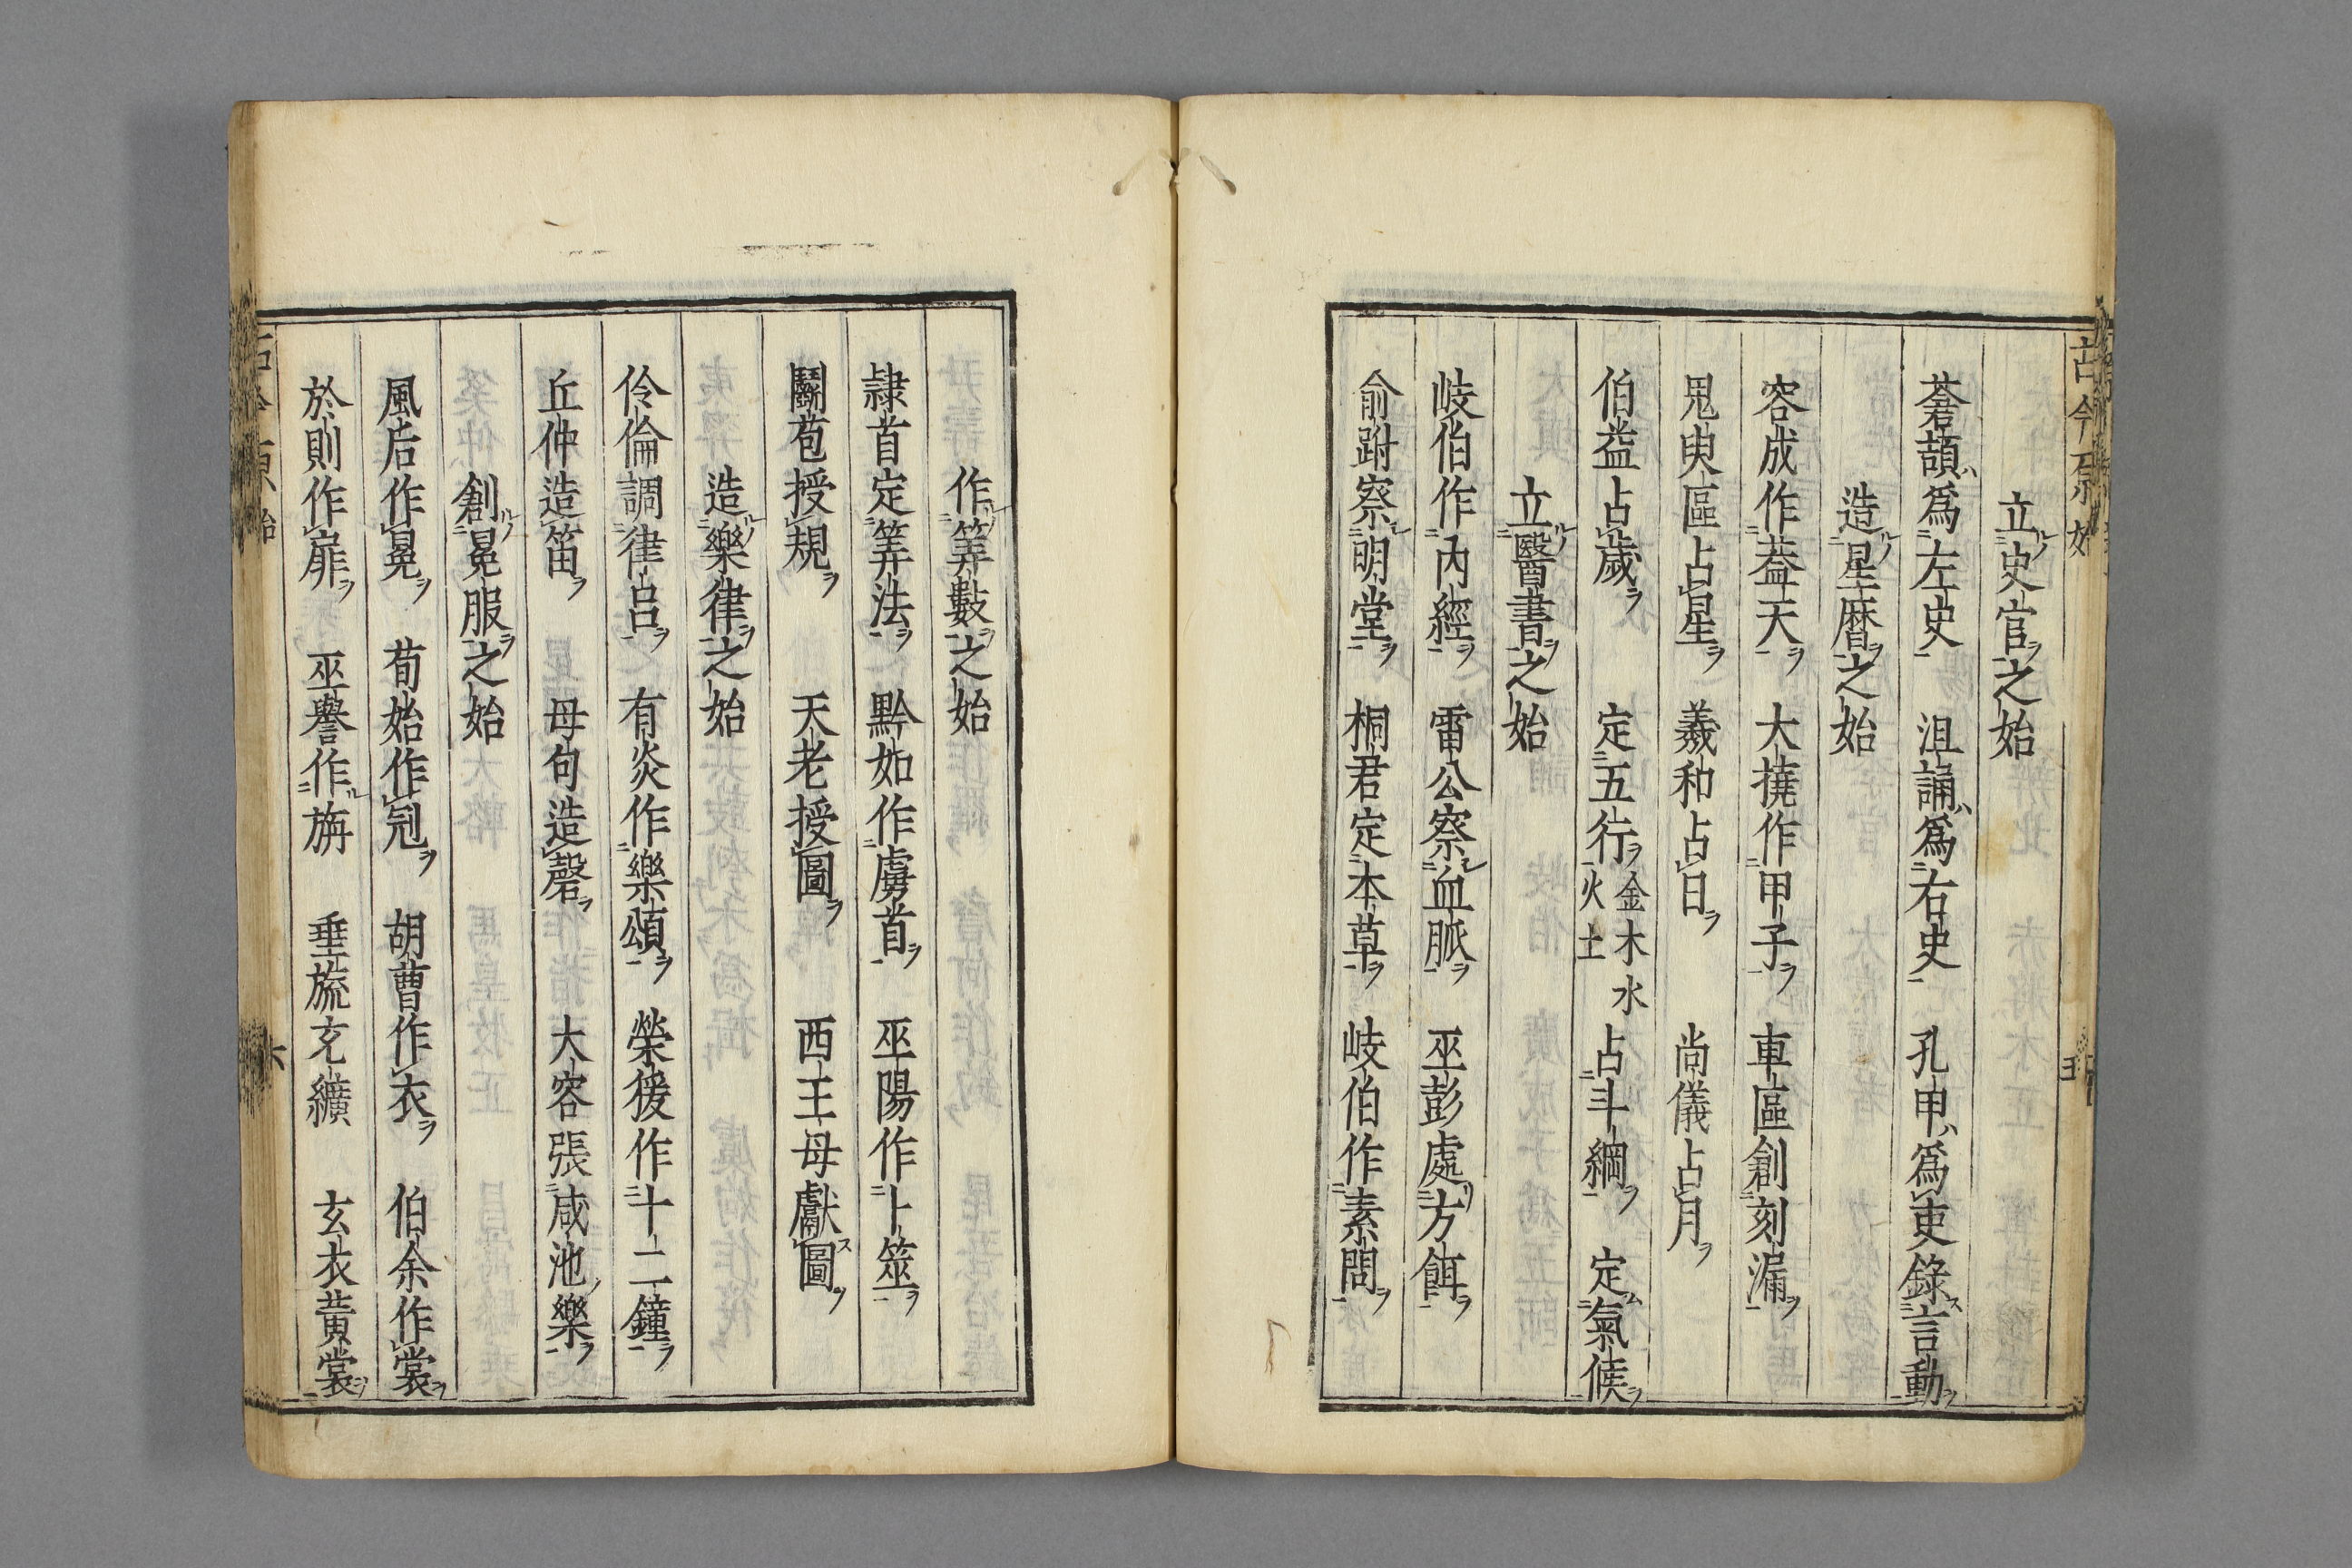 古今原始
立史官之始
蒼頡爲左史 沮誦爲右史 孔甲爲吏錄言動
造星曆之始
容成作蓋天 大撓作甲子 車區創刻漏
鬼臾區占星 羲和占日 尚儀占月
伯益占歲 定五行金木水火土 占斗綱 定氣候
立醫書之始
岐伯作內經 雷公察血脈 巫彭處方餌
俞跗察明堂 桐君定本草 岐伯作素問
作筭數之始
隸首定筭法 黔如作虜首 巫陽作卜筮
鬭苞授規 天老授圖 西王母獻圖
造樂律之始
伶倫調律呂 有炎作樂頌 榮猨作十二鐘
丘仲造笛 母句造磬 大容張咸池樂
創冕服之始
風后作冕 荀始作冠 胡曹作衣 伯余作裳
於則作扉 巫譽作旃 垂旒充纊 玄衣黃裳
古今原始
六